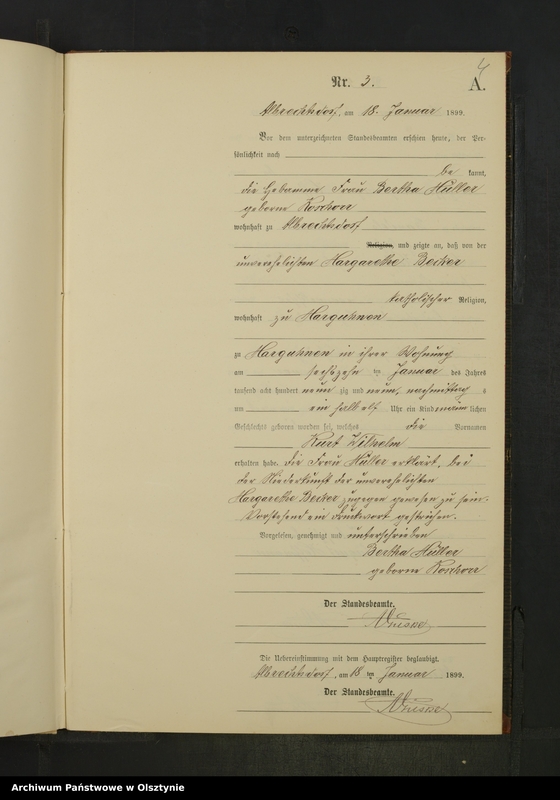 4
Nr. 3.
A.
Albrechtsdorf, am 18. Januar 1899.
Vor dem unterzeichneten Standesbeamten erschien heute, der Per-
sönlichkeit nach
be kannt,
die Hebamme Frau Bertha Müller
geborne Roschorr
wohnhaft zu Albrechtsdorf
Religion, und zeigte an, daß von der
unverehelichten Margarethe Becker
katholischer Religion,
wohnhaft zu Marguhnen
zu Marguhnen in ihrer Wohnung
am sechszehn ten Januar des Jahres
tausend acht hundert neun zig und neun, nachmittag s
um ein halb elf Uhr ein Kind männ lichen
Geschlechts geboren worden sei, welches die Vornamen
Kurt Wilhelm
erhalten habe. die Frau Müller erklärt, bei
der Niederkunft der unverehelichten
Margarethe Becker zugegen gewesen zu sein.
Vorstehend ein Druckwort gestrichen.
Vorgelesen, genehmigt und unterschrieben
Bertha Müller
geborne Roschorr
Der Standesbeamte.
Die Uebereinstimmung mit dem Hauptregister beglaubigt.
Albrechtsdorf, am 18 ten Januar 1899.
Der Standesbeamte.
Archiwum Państwowe w Olsztynie